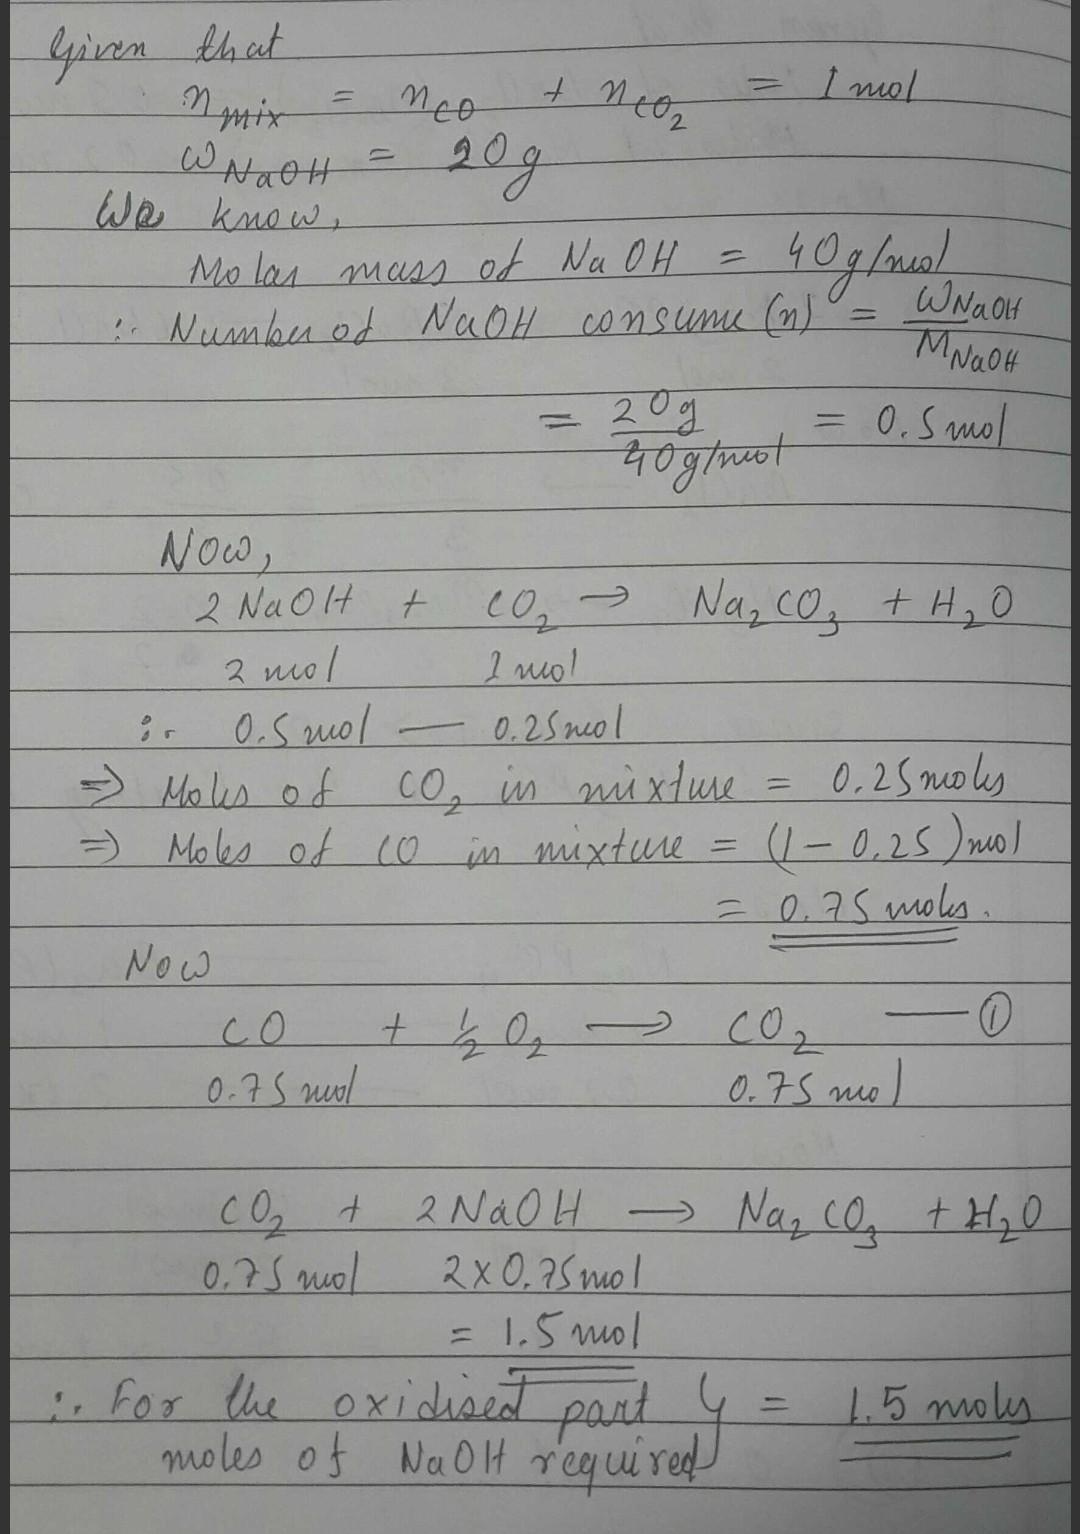 Given that
n mix = n CO + n CO₂ = 1 mol
ω NaOH = 20g
We know,
Molar mass of NaOH = 40g/mol
∴ Number of NaOH consume (n) = ωNaOH / MNaOH
= 20g / 40g/mol = 0.5 mol
Now,
2 NaOH + CO₂ → Na₂CO₃ + H₂O
2 mol 1 mol
∴ 0.5 mol — 0.25 mol
⇒ Moles of CO₂ in mixture = 0.25 moles
⇒ Moles of CO in mixture = (1 - 0.25) mol
= 0.75 moles.
Now
CO + ½ O₂ → CO₂ — ①
0.75 mol 0.75 mol
CO₂ + 2 NaOH → Na₂CO₃ + H₂O
0.75 mol 2 x 0.75 mol
= 1.5 mol
∴ For the oxidised part } = 1.5 moles
moles of NaOH required